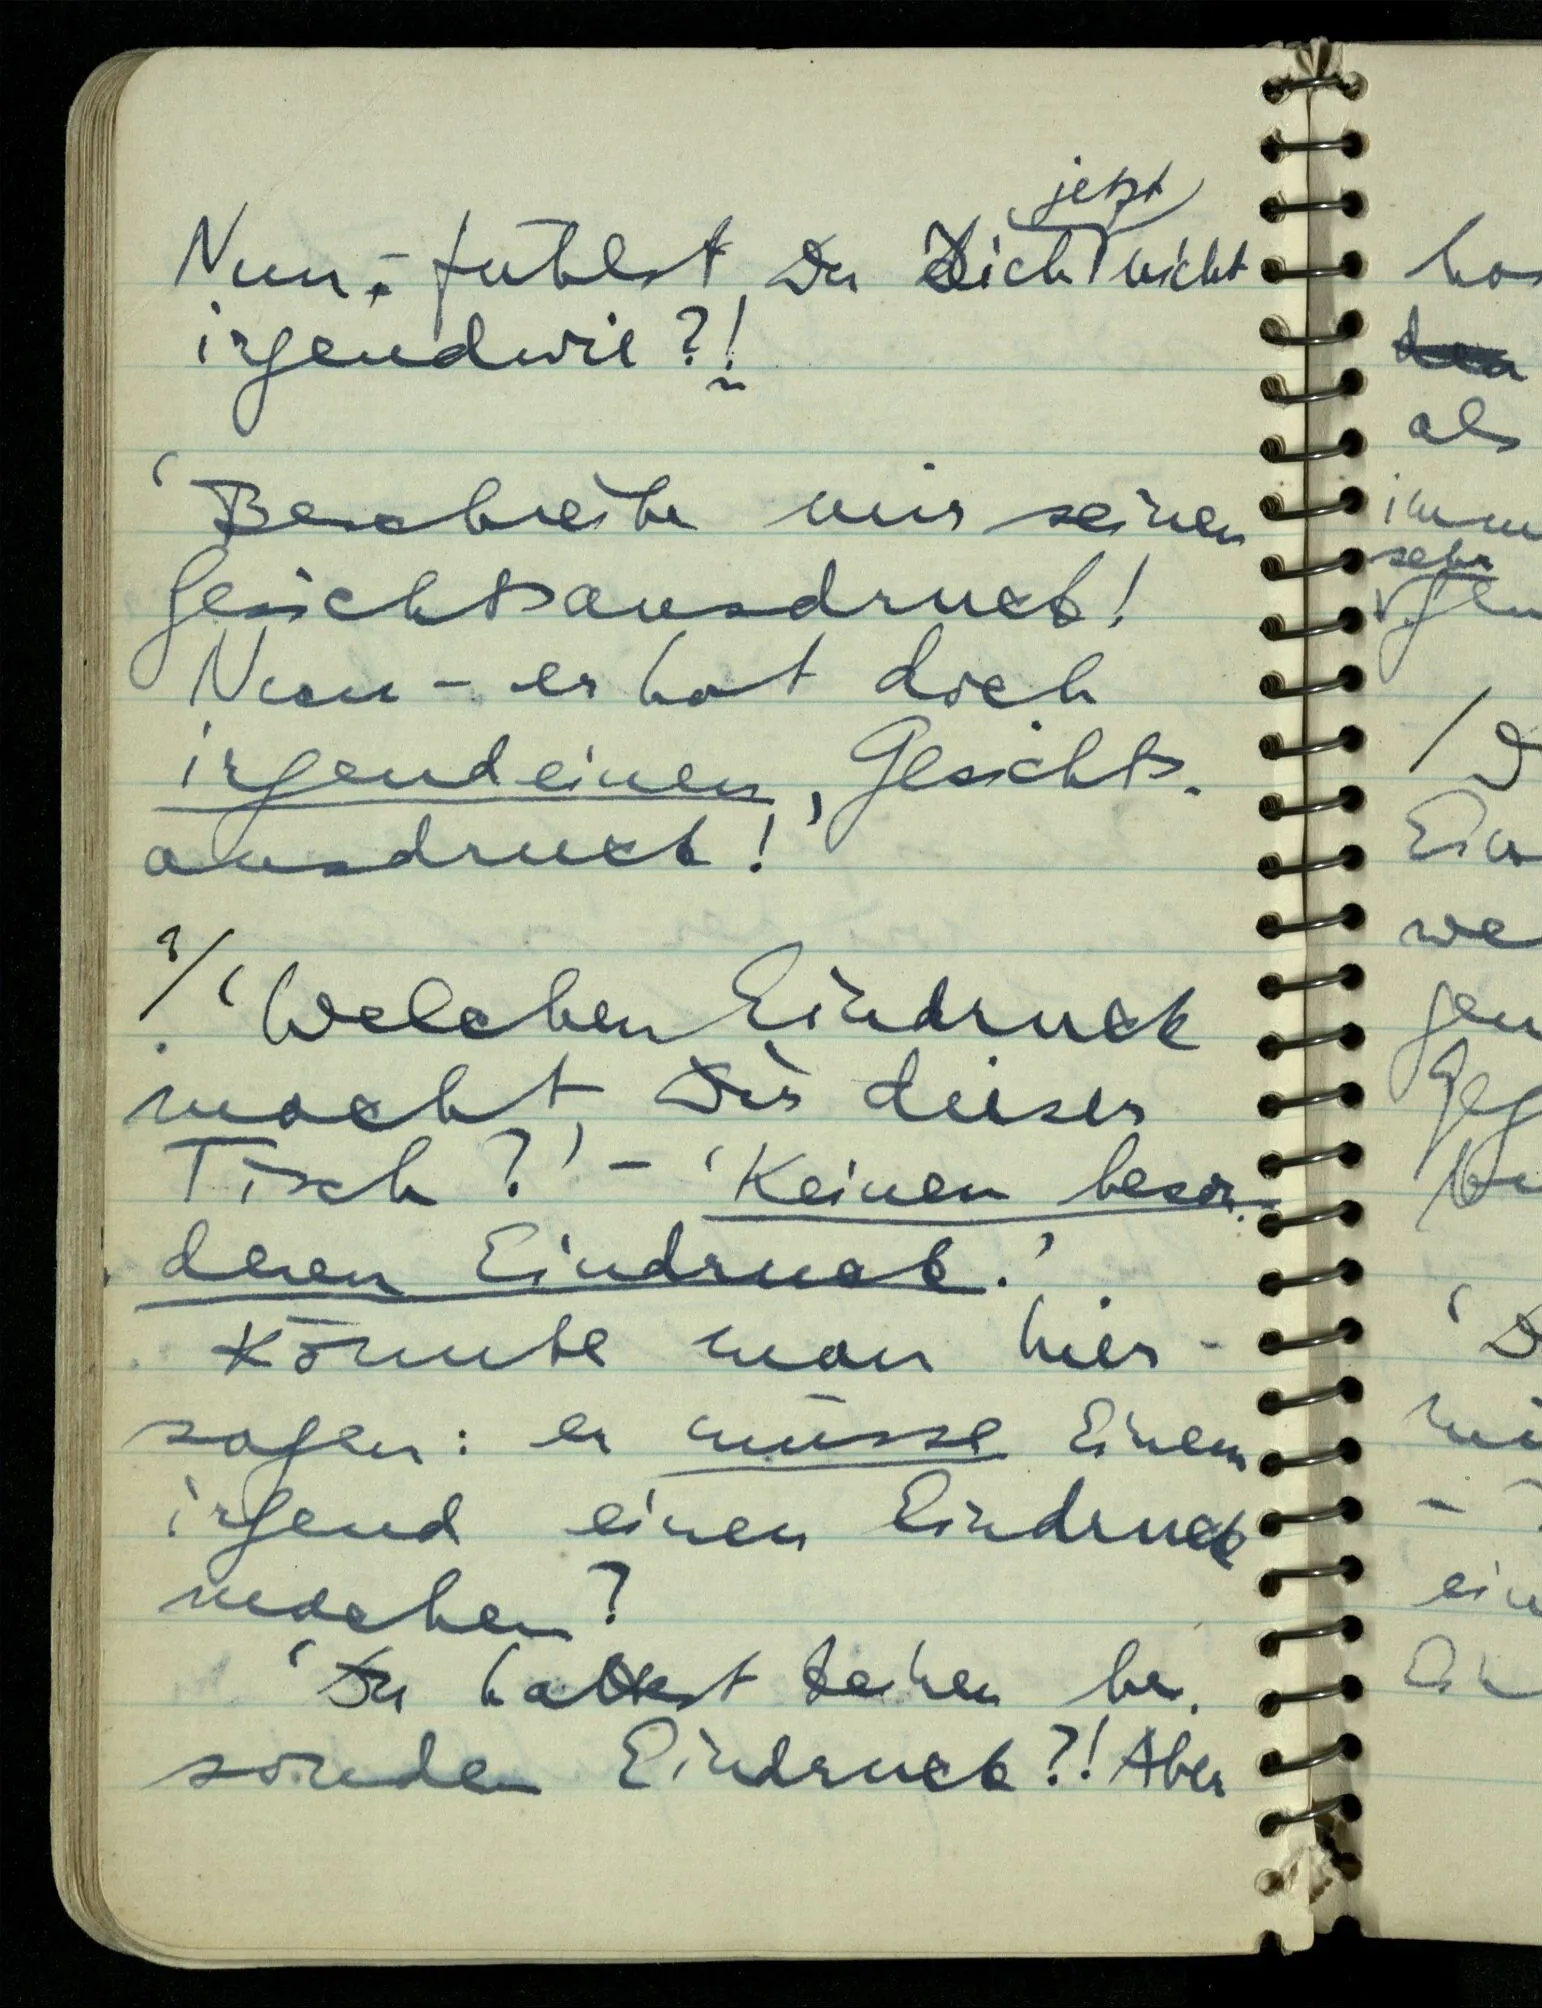 jetzt
Nun, – fühlst Du Dich nicht
irgendwie?!
'Beschreibe mir seinen
Gesichtsausdruck!
Nun – er hat doch
irgendeinen, Gesichts-
ausdruck!'
?/ 'Welchen Eindruck
macht Dir dieser
Tisch?' – 'Keinen beson-
deren Eindruck.'
Könnte man hier
sagen: er müsse Einem
irgend einen Eindruck
machen?
'Du hast keinen be-
sonden Eindruck?! Aber
als
sehr